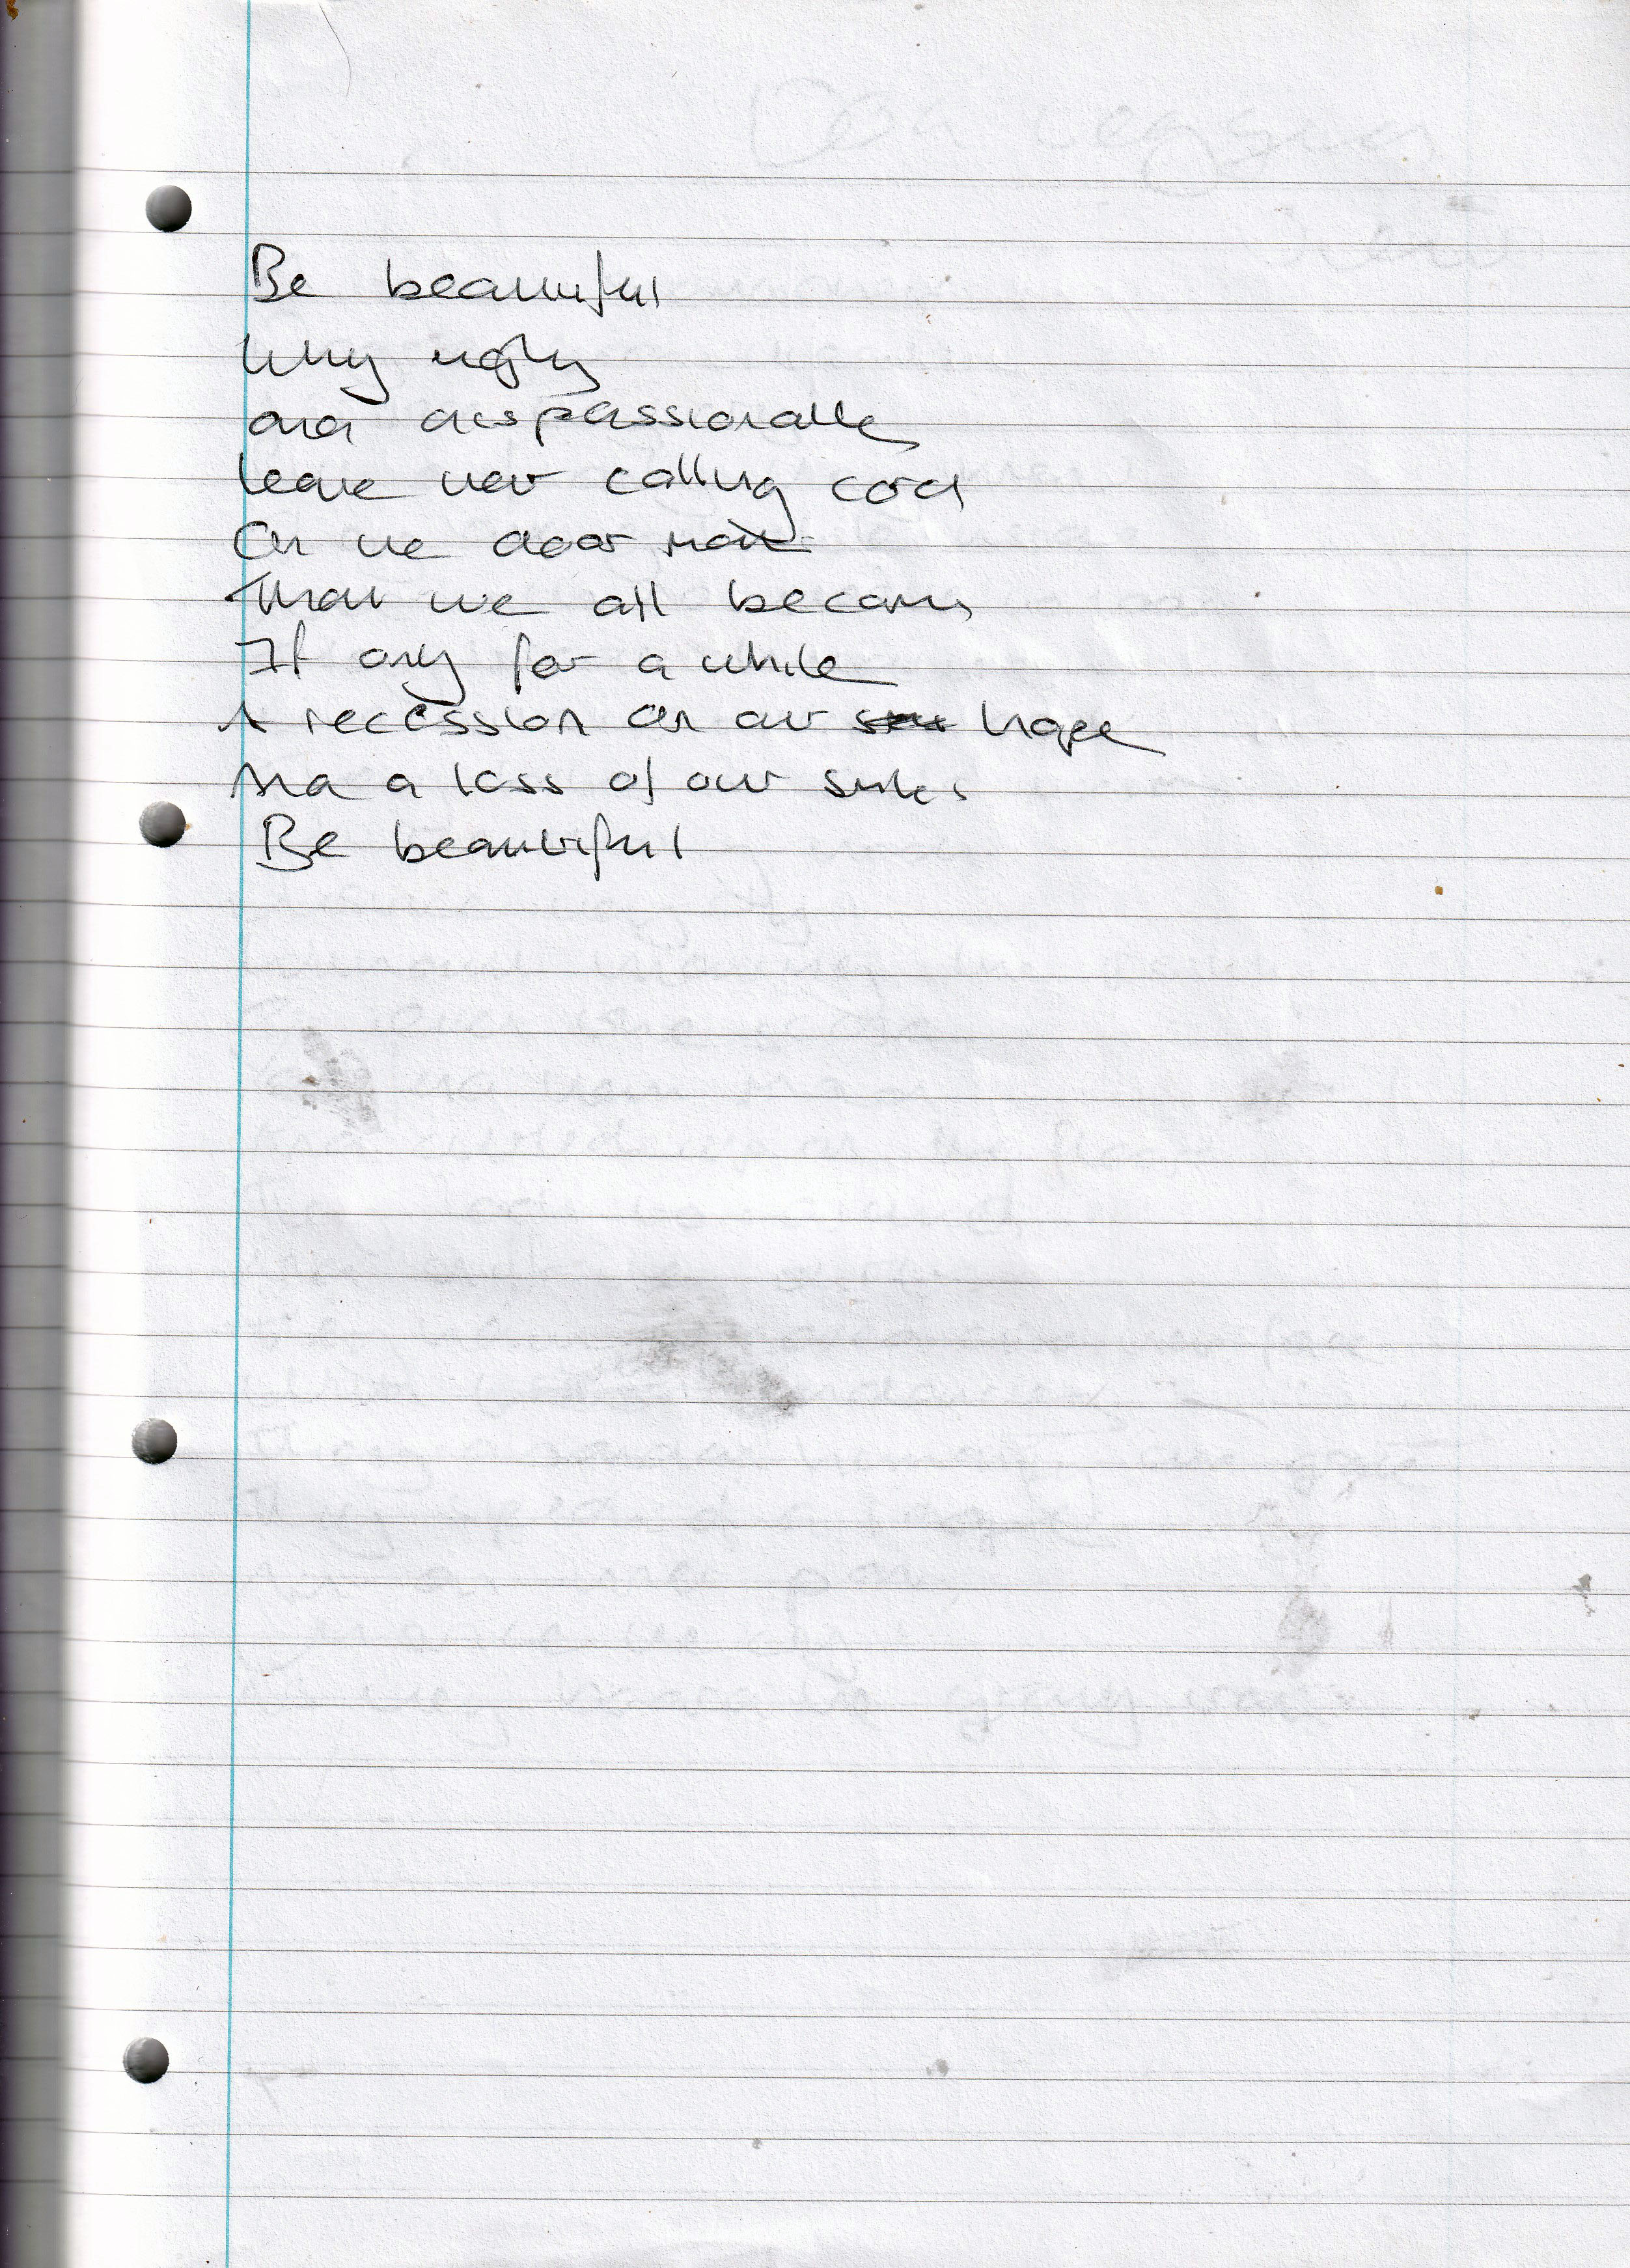 Be beautiful
Why ugly
and dispassionate
leave her calling card
On the door mat
That we all become
If only for a while
A recession on our hope
And a loss of our smiles
Be beautiful